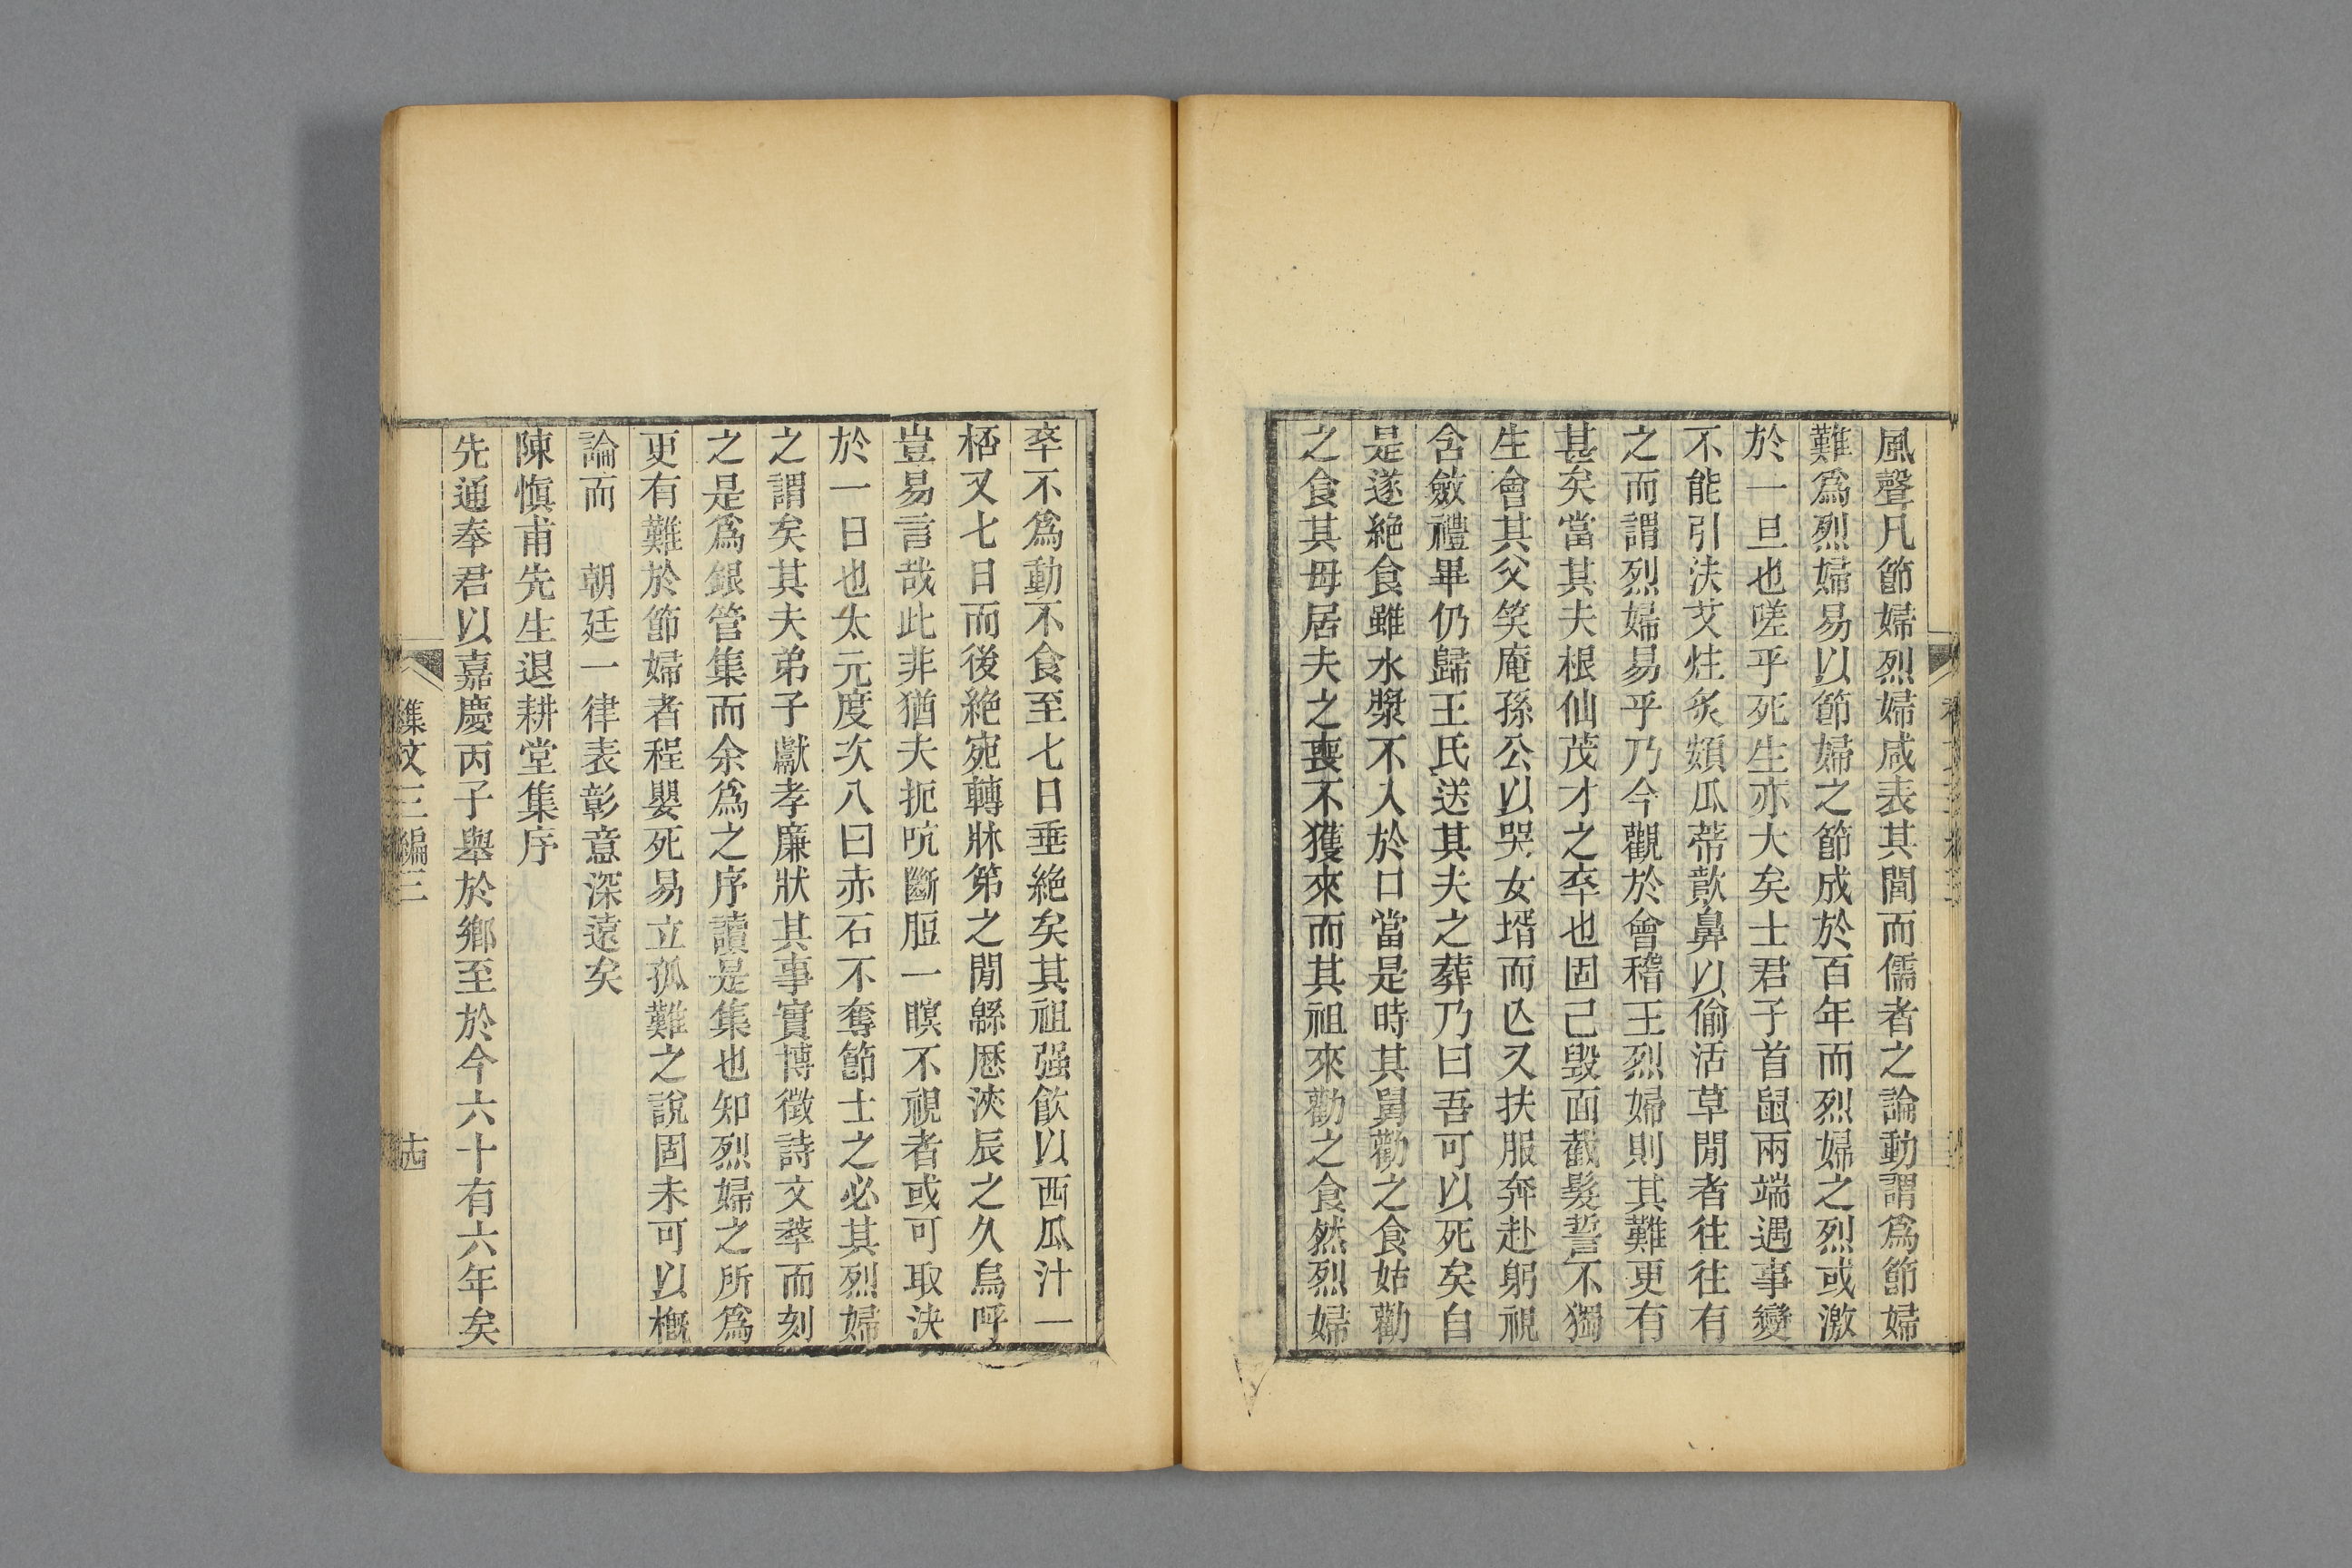 風聲凡節婦烈婦咸表其閭而儒者之論動謂爲節婦
難爲烈婦易以節婦之節成於百年而烈婦之烈或激
於一旦也嗟乎死生亦大矣士君子首鼠兩端遇事變
不能引決艾炷炙頞瓜蔕歕鼻以偷活草閒者往往有
之而謂烈婦易乎乃今觀於會稽王烈婦則其難更有
甚矣當其夫根仙茂才之卒也固己毀面截髮誓不獨
生會其父笑庵孫公以哭女壻而亾又扶服奔赴躬視
含斂禮畢仍歸王氏送其夫之葬乃曰吾可以死矣自
是遂絕食雖水漿不入於口當是時其舅勸之食姑勸
之食其母居夫之喪不獲來而其祖來勸之食然烈婦
卒不爲動不食至七日垂絕矣其祖强飮以西瓜汁一
桮又七日而後絕宛轉牀笫之閒緜厯浹辰之久烏呼
豈易言哉此非猶夫扼吭斷脰一瞑不視者或可取決
於一日也太元度次八曰赤石不奪節士之必其烈婦
之謂矣其夫弟子獻孝廉狀其事實博徵詩文萃而刻
之是爲銀管集而余爲之序讀是集也知烈婦之所爲
更有難於節婦者程嬰死易立孤難之說固未可以槪
論而　朝廷一律表彰意深遠矣
陳愼甫先生退耕堂集序
先通奉君以嘉慶丙子舉於鄉至於今六十有六年矣
襍文三編三
十四